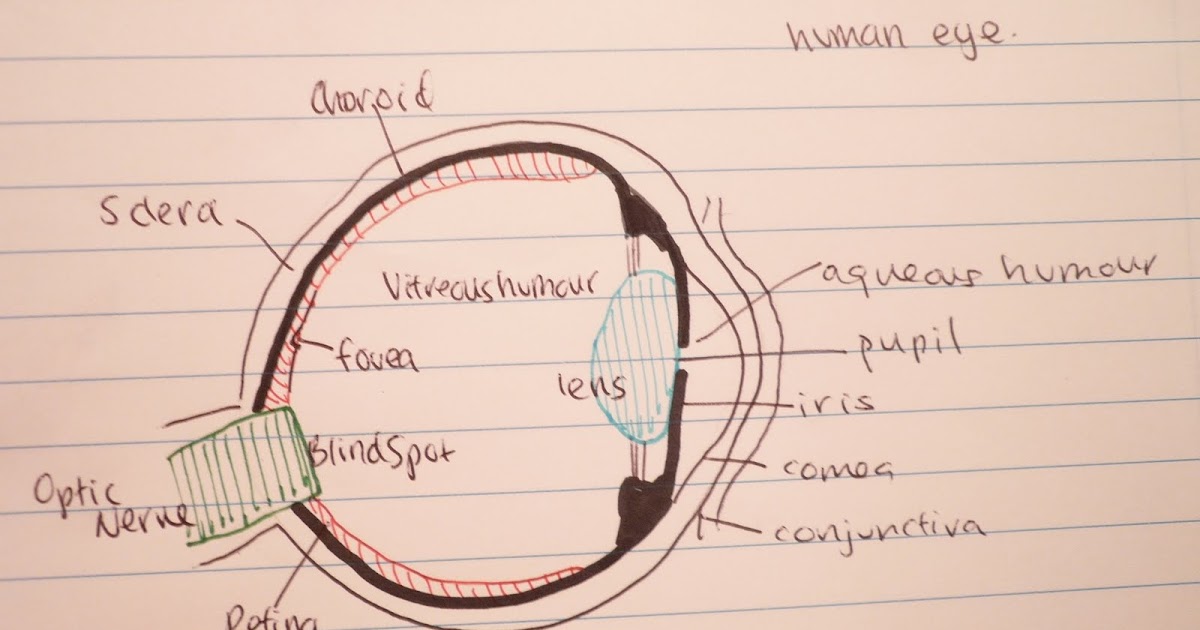 human eye.
Choroid
Sclera
Vitreous humour
aqueous humour
pupil
fovea
lens
iris
Blind Spot
cornea
Optic
Nerve
conjunctiva
Retina